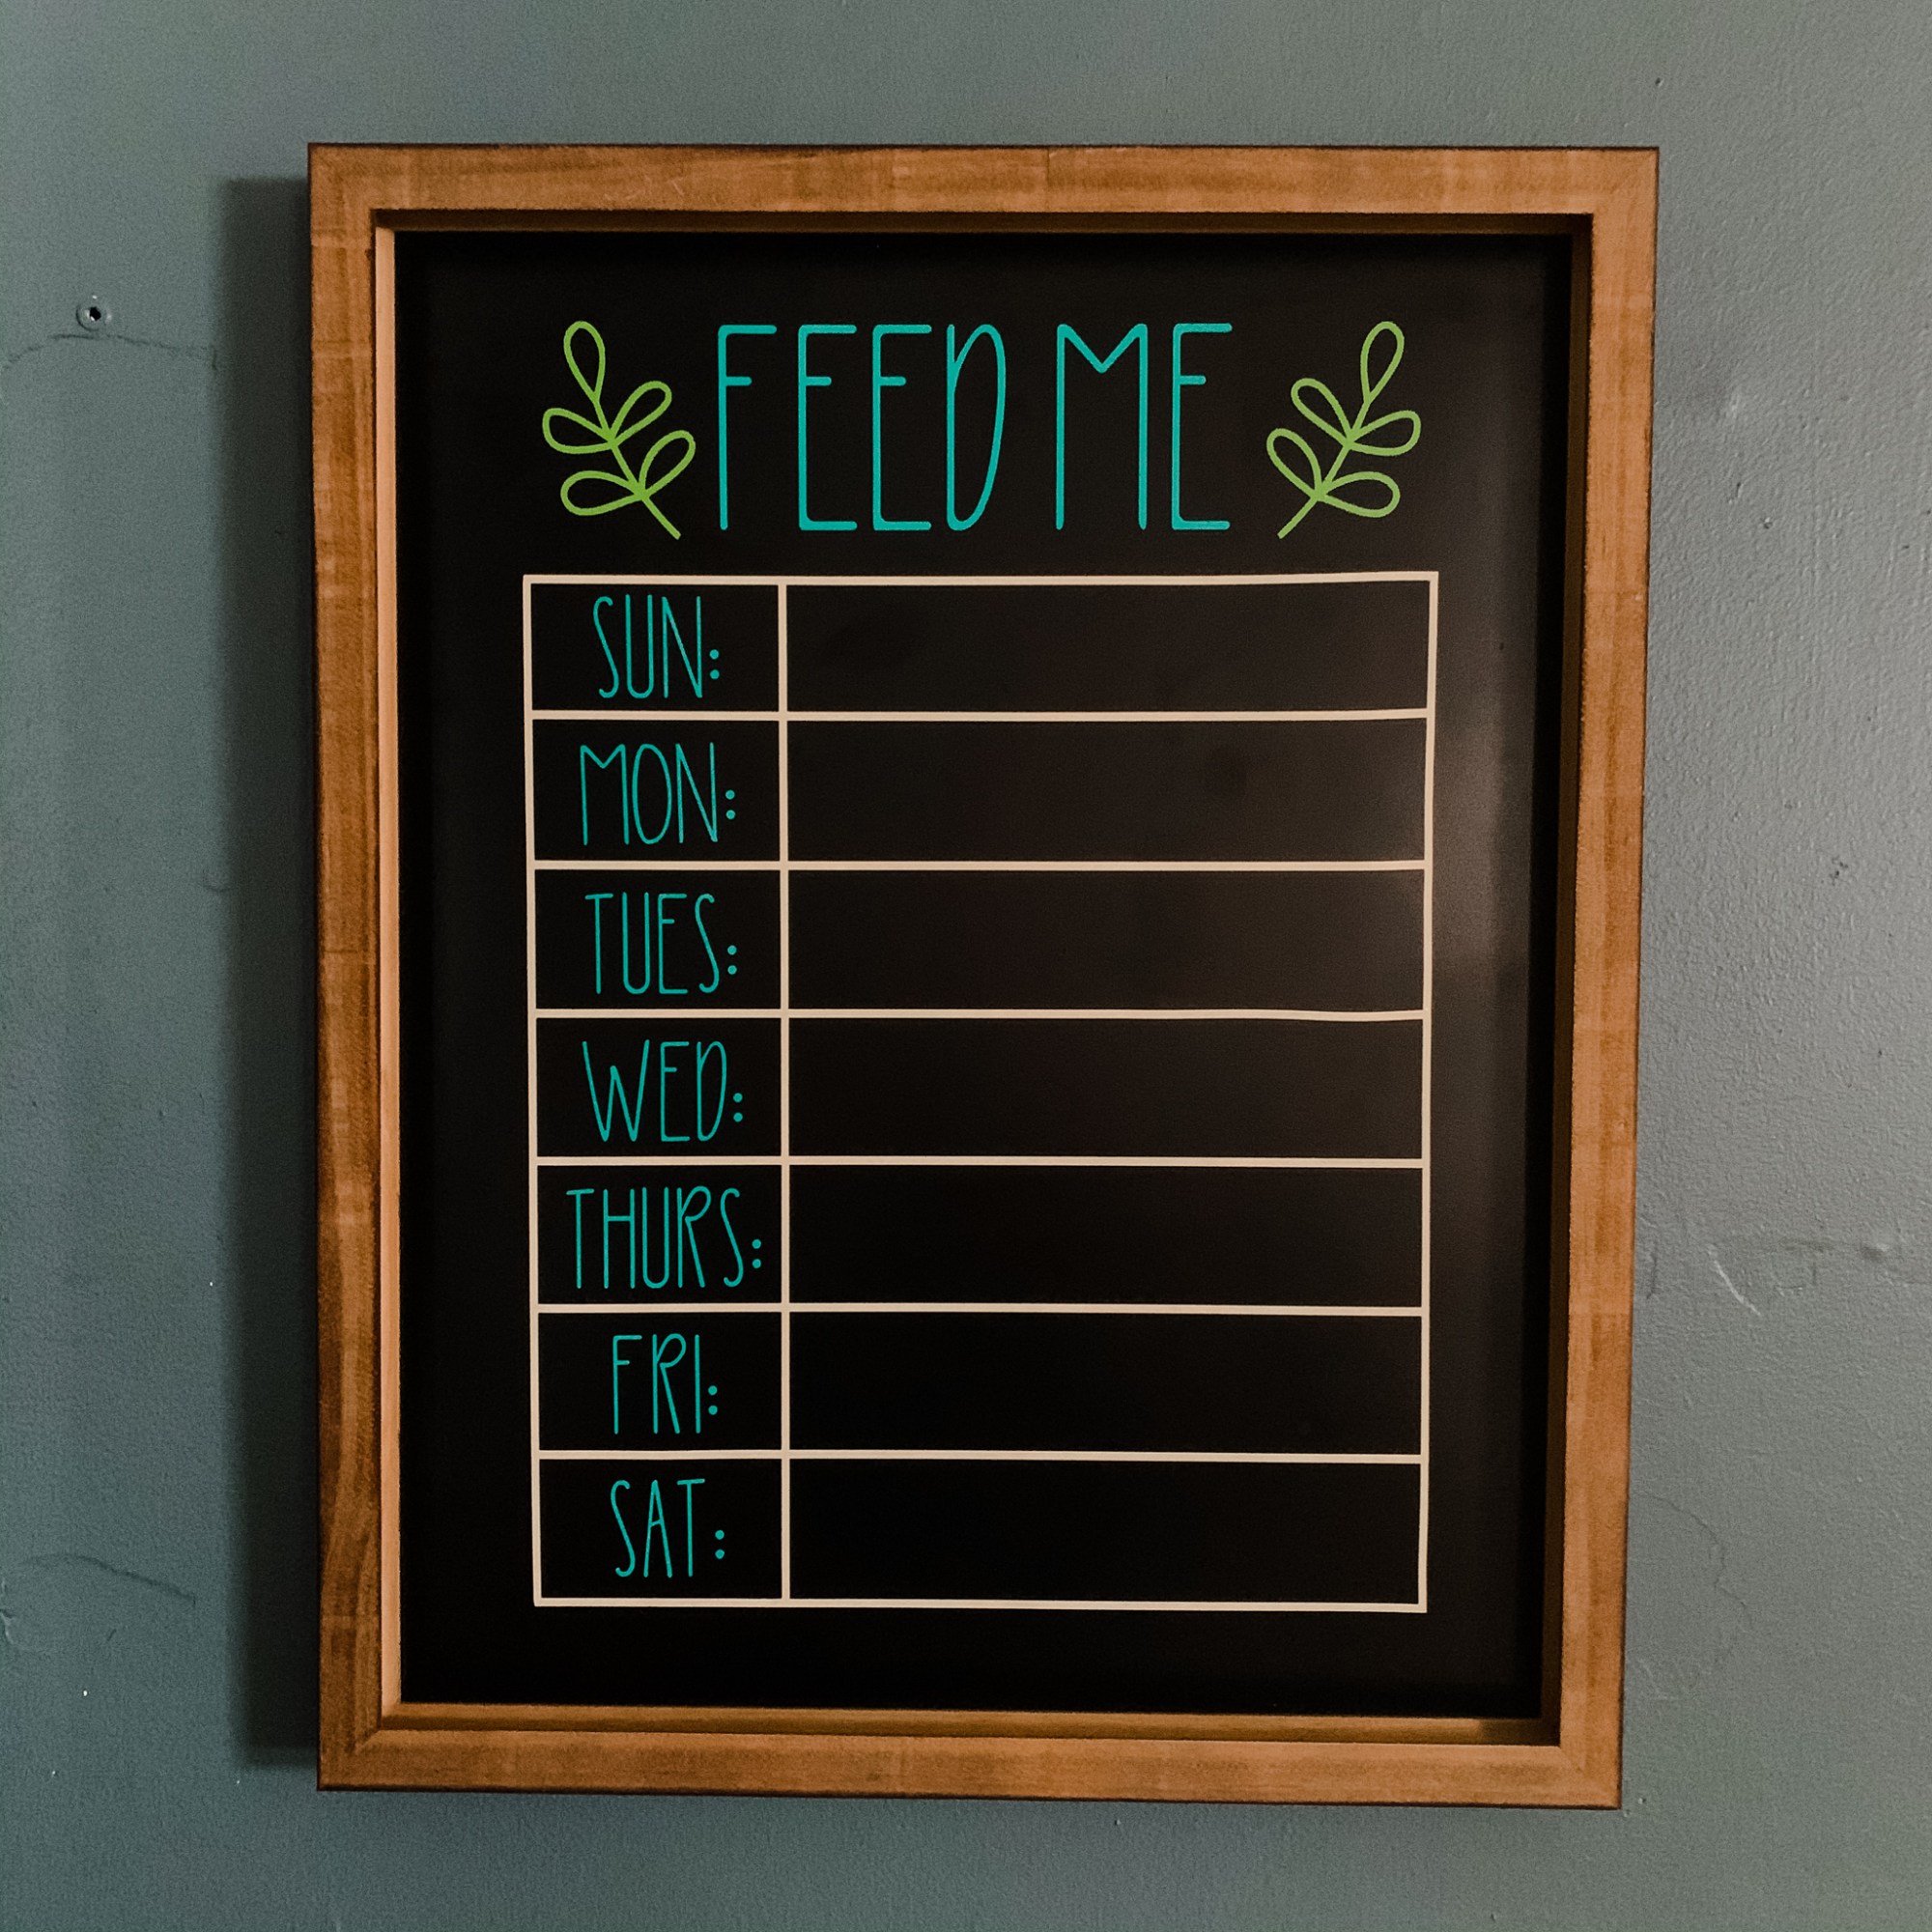 FEED ME
SUN:
MON:
TUES:
WED:
THURS:
FRI:
SAT: